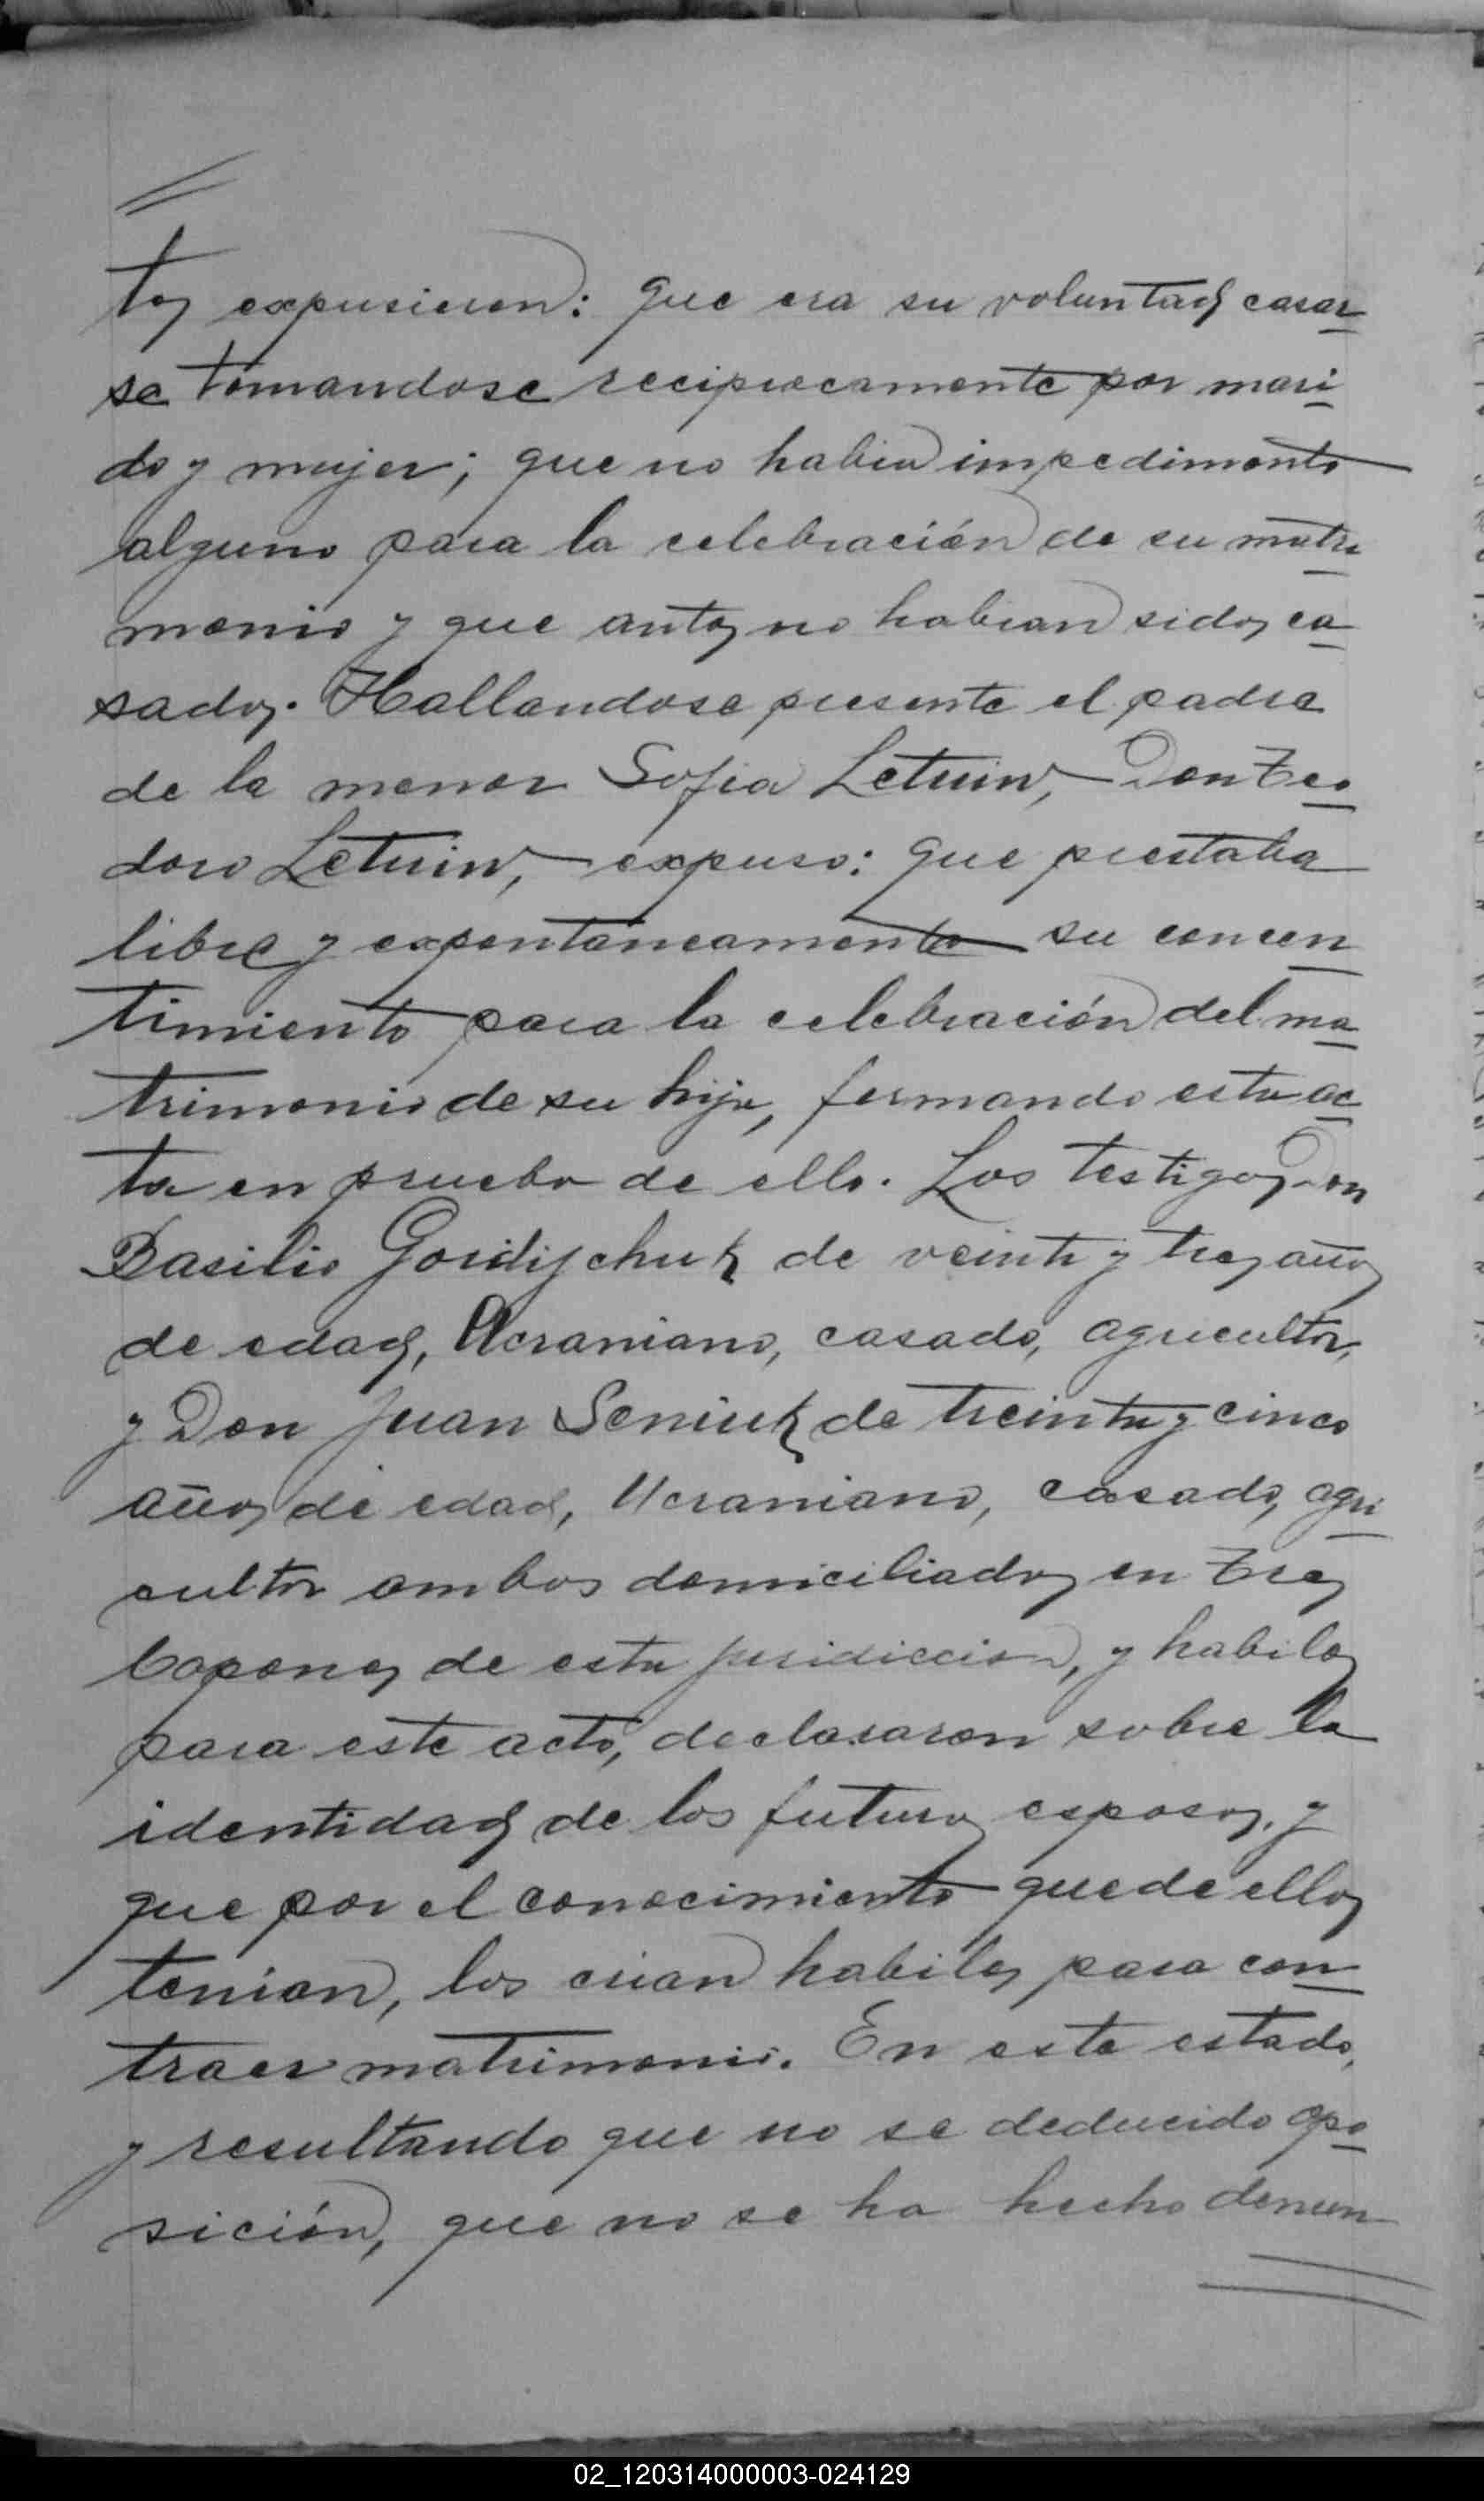 tes expusieron: que era su voluntad casar
se tomandose reciprocamente por mari
do y mujer; que no habia impedimento
alguno para la celebración de su matri
monio y que antes no habian sidos ca
sados. Hallandose presente el padre
de la menor Sofia Letwin, Don Teo
doro Letwin, expuso: que prestaba
libre y expontáneamente su concen
timiento para la celebración del ma
trimonio de su hija, firmando esta ac
ta en prueba de ello. Los testigos Don
Basilio Gordijchuk de veinti y tres años
de edad, Ucraniano, casado, agricultor,
y Don Juan Seniuk de treinta y cinco
años de edad, Ucraniano, casado, agri
cultor ambos domiciliados en Tres
Capones de esta juridiccion, y habiles
para este acto, declararon sobre la
identidad de los futuros esposos, y
que por el conocimiento que de ellos
tenian, los crian habiles para con
traer matrimonio. En este estado,
y resultando que no se deducido opo
sición, que no se ha hecho denun
02_120314000003-024129